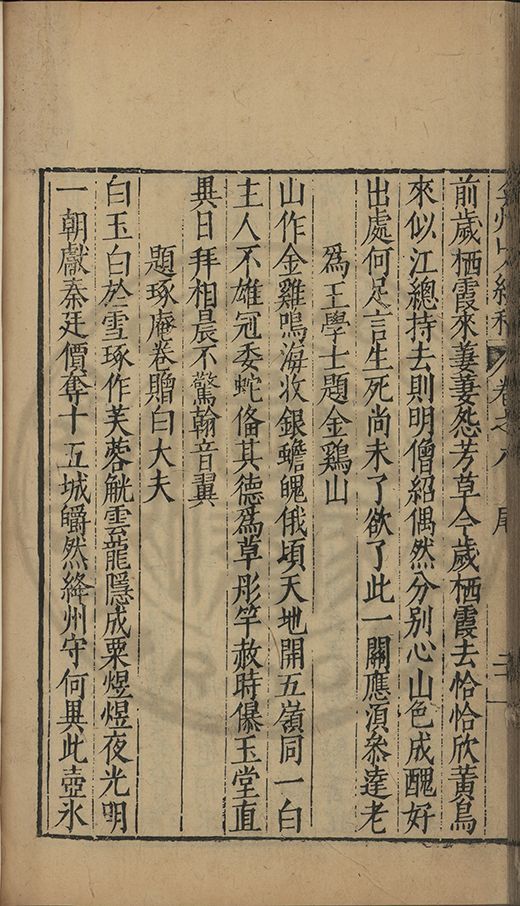 卷之八
前歲栖霞來萋萋怨芳草今歲栖霞去恰恰欣黃鳥
來似江總持去則明僧紹偶然分別心山色成醜好
出處何足言生死尚未了欲了此一關應須叅達老
爲王學士題金鷄山
山作金雞鳴海收銀蟾魄俄頃天地開五嶺同一白
主人不雄冠委蛇俻其德爲草彤竿赦時儤玉堂直
異日拜相晨不驚翰音翼
題琢庵卷贈白大夫
白玉白於雪琢作芙蓉觥雲龍隱成粟煜煜夜光明
一朝獻秦廷價奪十五城皭然絳州守何異此壺氷